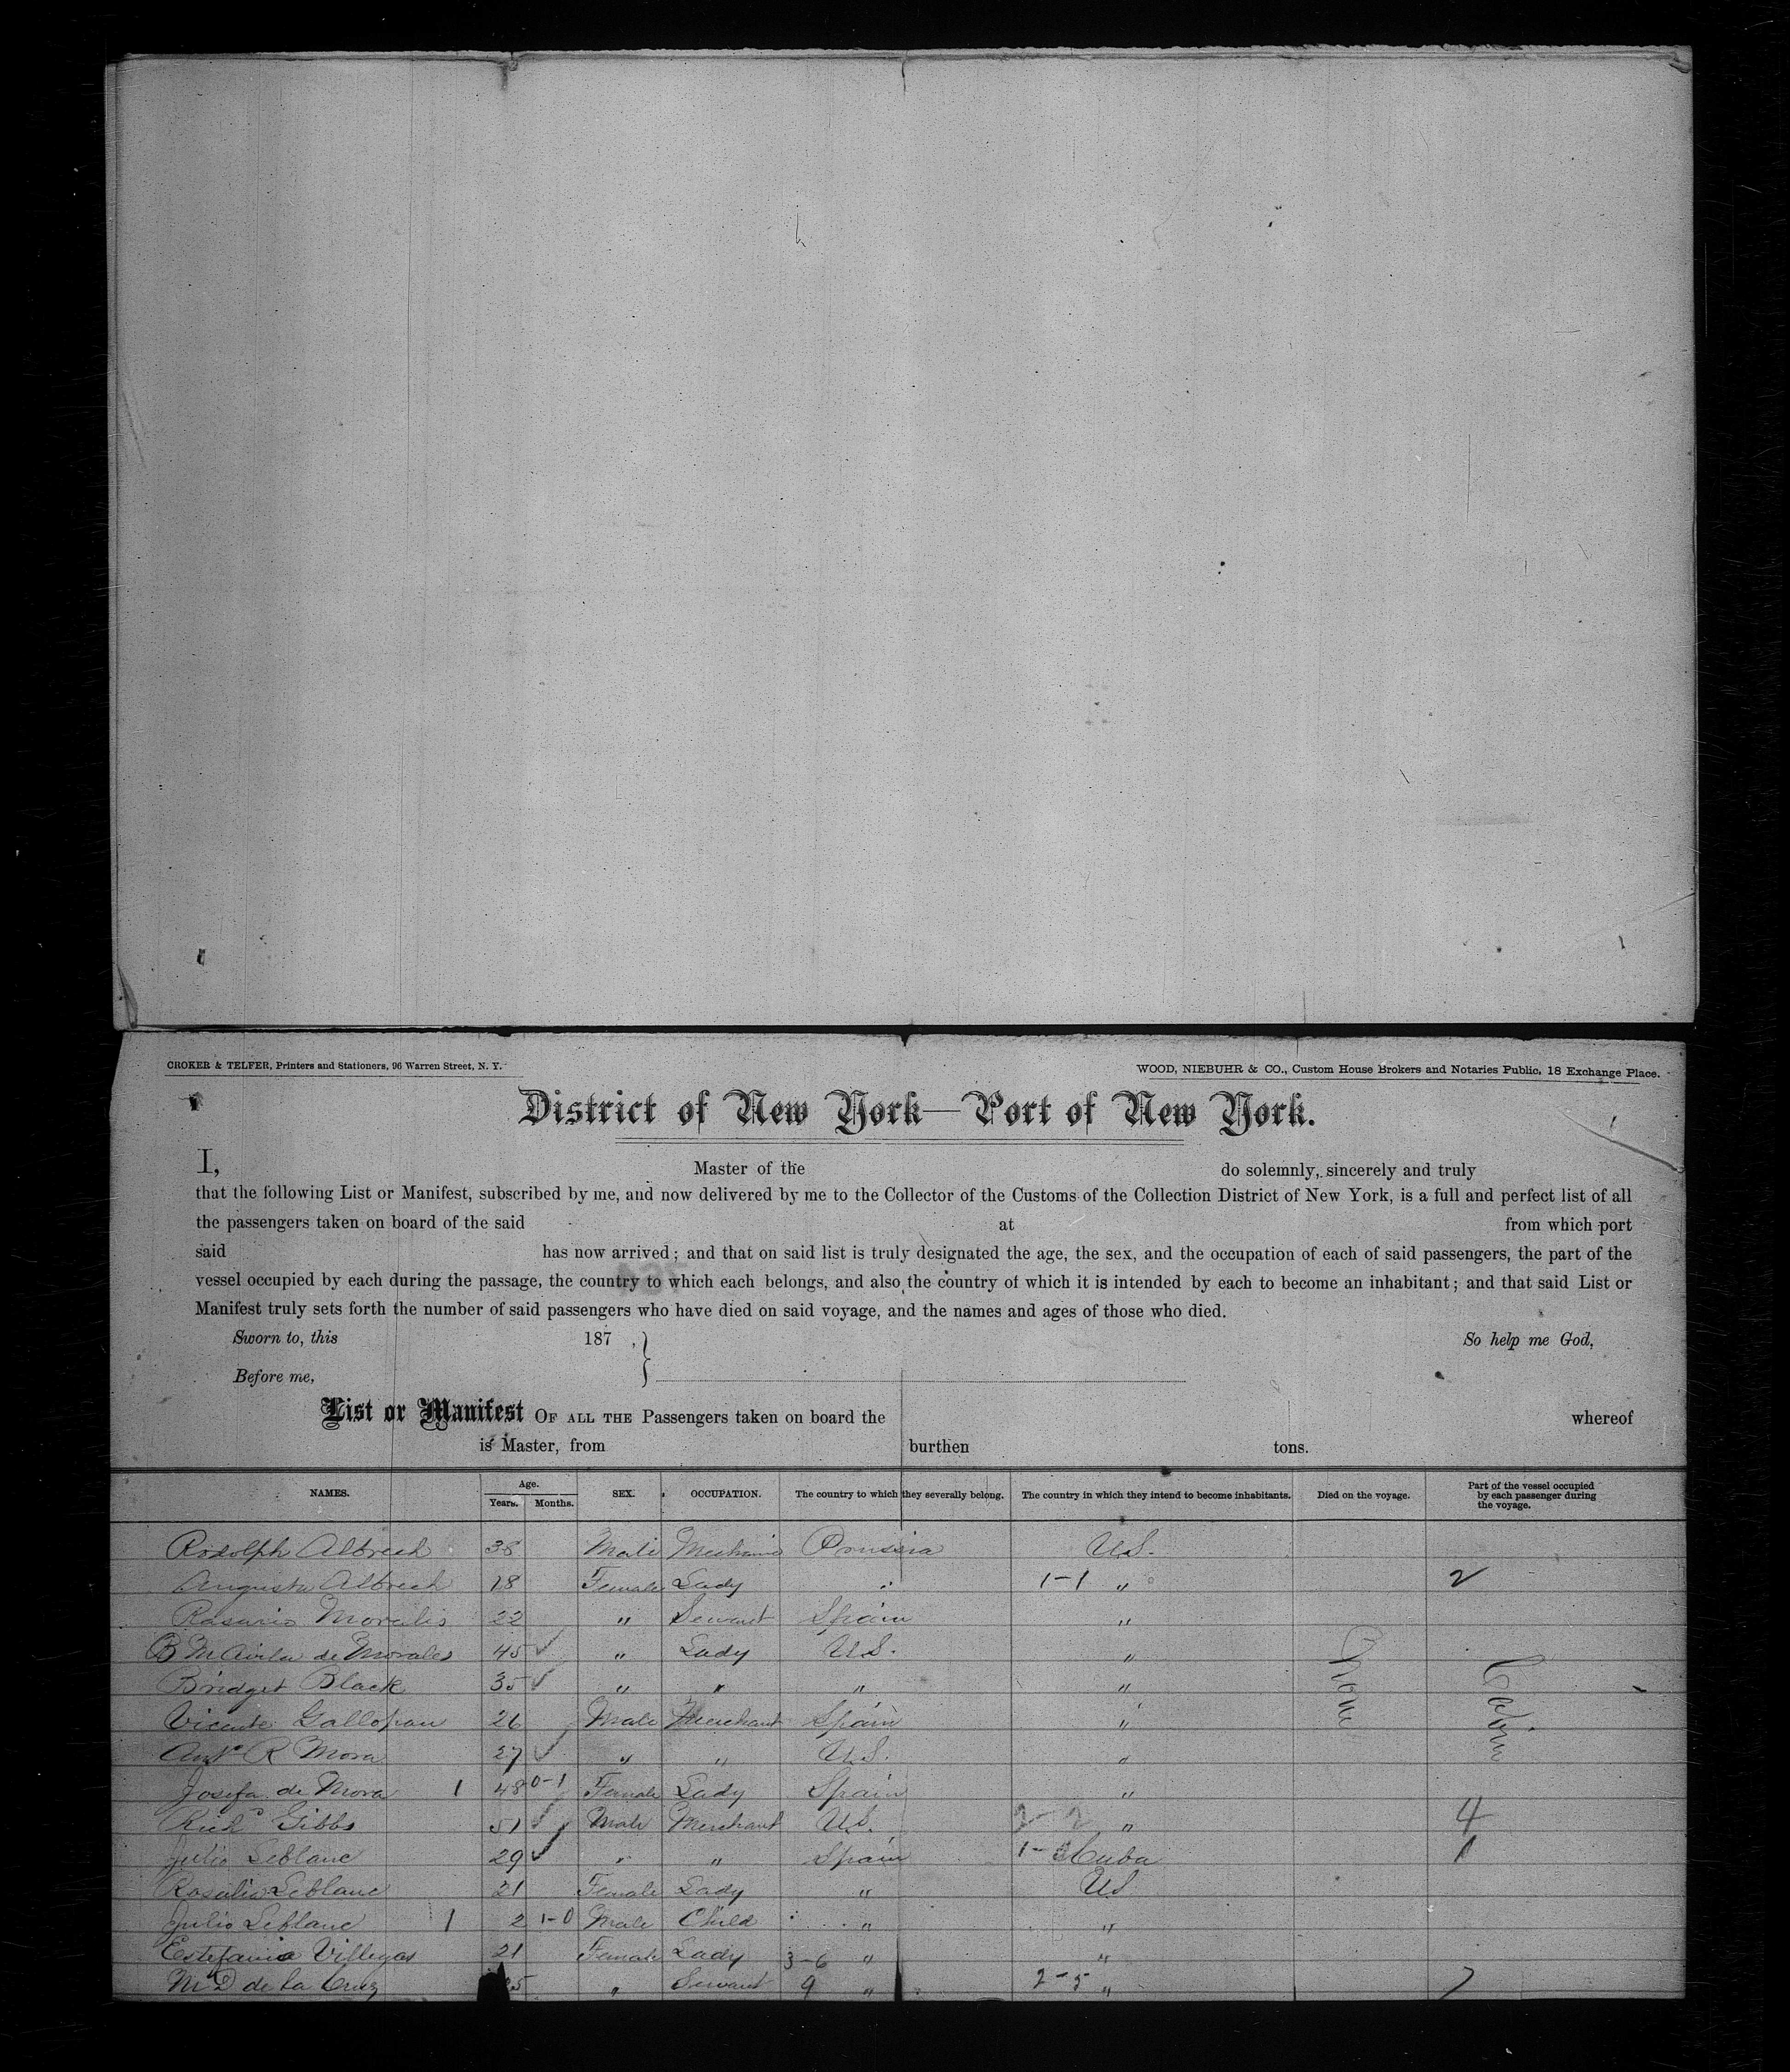 CROKER & TELFER, Printers and Stationers, 96 Warren Street, N. Y.
WOOD, NIEBUHR & CO., Custom House Brokers and Notaries Public, 18 Exchange Place.
District of New York—Port of New York.
I, Master of the do solemnly, sincerely and truly
that the following List or Manifest, subscribed by me, and now delivered by me to the Collector of the Customs of the Collection District of New York, is a full and perfect list of all
the passengers taken on board of the said at from which port
said has now arrived; and that on said list is truly designated the age, the sex, and the occupation of each of said passengers, the part of the
vessel occupied by each during the passage, the country to which each belongs, and also the country of which it is intended by each to become an inhabitant; and that said List or
Manifest truly sets forth the number of said passengers who have died on said voyage, and the names and ages of those who died.
Sworn to, this 187 , } So help me God,
Before me,
List or Manifest OF ALL THE Passengers taken on board the whereof
is Master, from burthen tons.
NAMES. Age. Years. Months. SEX. OCCUPATION. The country to which they severally belong. The country in which they intend to become inhabitants. Died on the voyage. Part of the vessel occupied by each passenger during the voyage.
Rodolph Albrech 38 Male Mechanic Prussia U.S.
Augusta Albrech 18 Female Lady " 1-1 " 2
Rosario Morales 22 " Servant Spain "
B M Avila de Morales 45 ✓ " Lady U.S. "
Bridget Black 35 ✓ " " " "
Vicente Gallopan 26 Male Merchant Spain " None Cabin
Anto R Mora 27 ✓ " " U.S. "
Josefa de Mora 1 48 0-1 Female Lady Spain "
Richd Gibbs 51 ✓ Male Merchant U.S. 2-2 " 4
Julio Leblanc 29 ✓ " " Spain 1- Cuba 1
Rosalia Leblanc 21 Female Lady " US
Julio Leblanc 1 2 1-0 Male Child " "
Estefania Villegas 21 Female Lady 3-6 " "
M D de la Cruz 5 " Servant 9 " 2-5 " 7